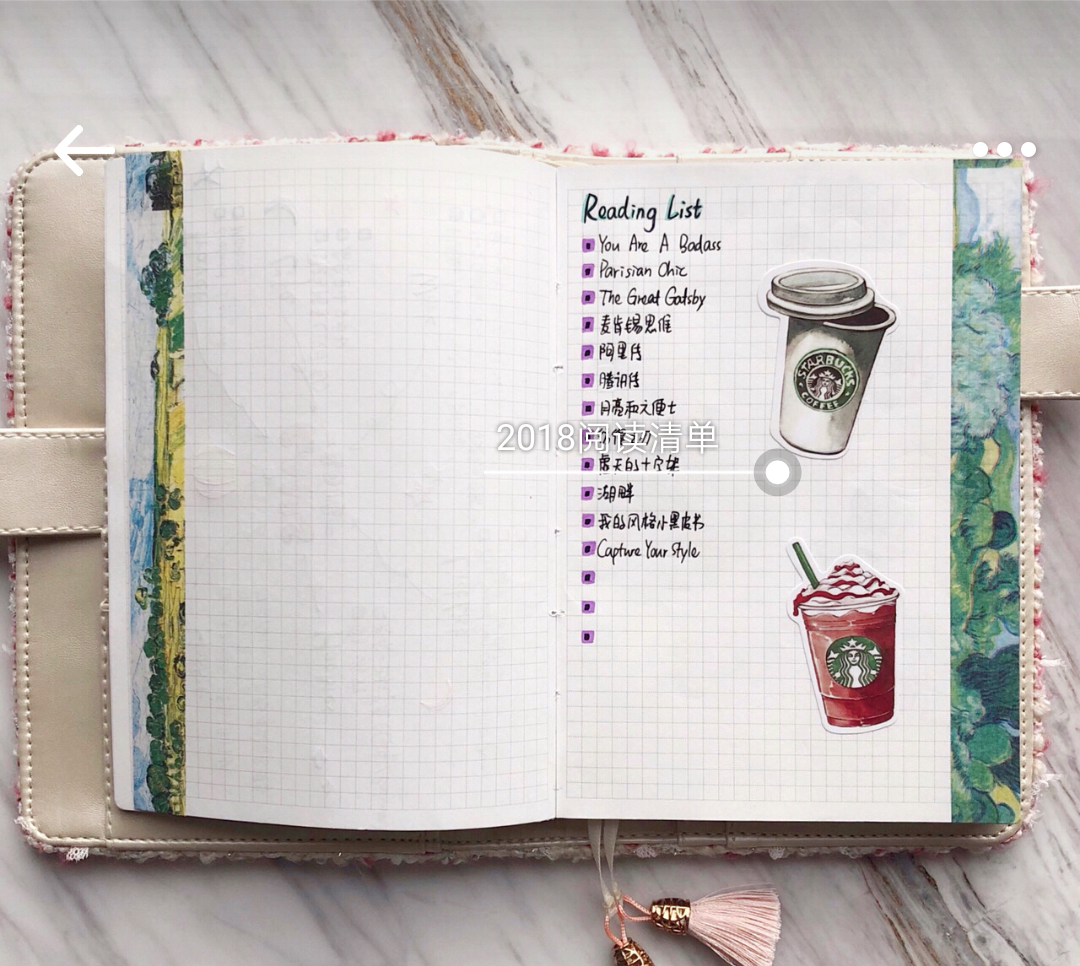 Reading List
You Are A Badass
Parisian Chic
The Great Gatsby
麦肯锡思维
阿里传
腾讯传
月亮和六便士
2018阅读清单
露天的十字架
湖畔
我的风格小黑皮书
Capture Your Style
STARBUCKS
COFFEE